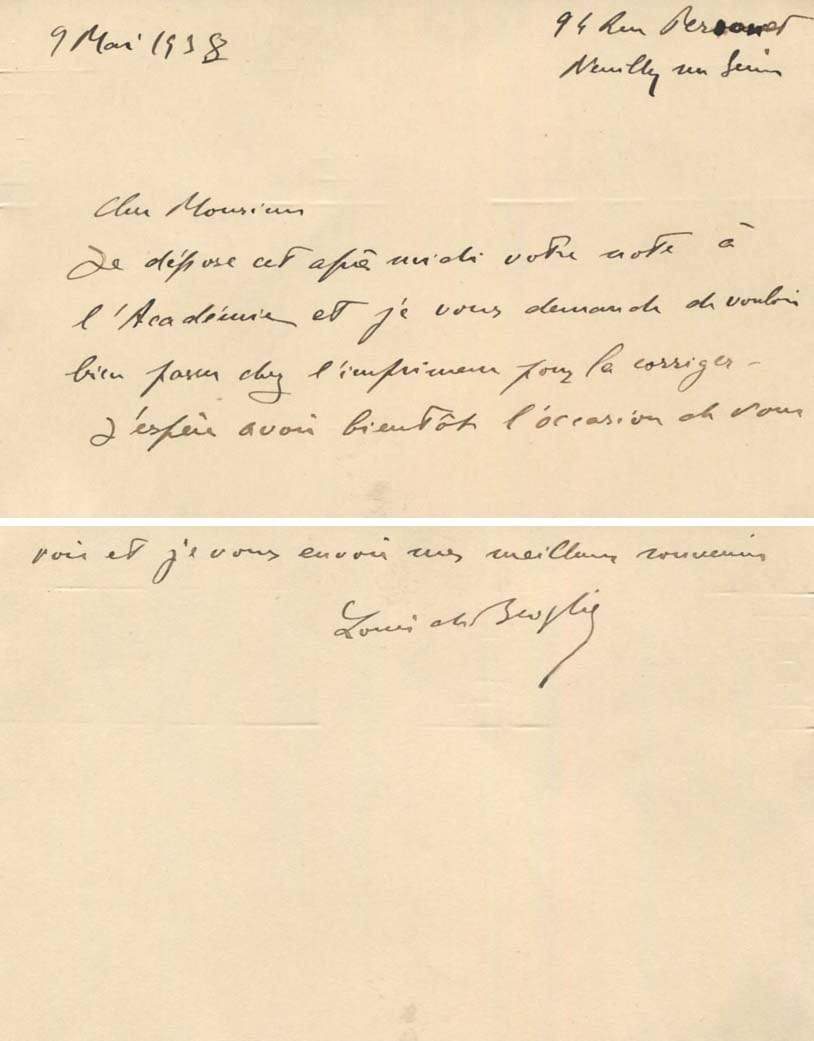 9 Mai 1938
94 Rue Perronet
Neuilly sur Seine
Cher Monsieur
Je dépose cet après midi votre note à
l'Académie et je vous demande de vouloir
bien passer chez l'imprimeur pour la corriger -
J'espère avoir bientôt l'occasion de vous
voir et je vous envoie mes meilleurs souvenirs
Louis de Broglie